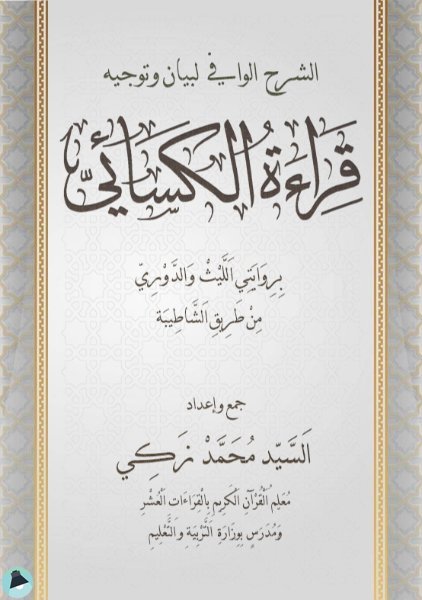 الشرح الوافي لبيان وتوجيه
قِرَاءَةُ الكِسَائِيّ
بِرِوَايَتِي اَللَّيْثْ وَالدُّورِيّ
مِنْ طَرِيقِ اَلشَّاطِبِيَة
جمع وإعداد
اَلسَّيِّد مُحَمَّدْ زَكِي
مُعَلِم اُلْقُرْآنِ اَلْكَرِيمِ بِالْقِرَاءَات اَلْعَشْرِ
وَمُدَرِس بِوِزَارَةِ اَلتَّرْبِيَةِ وَالتَّعْلِيمِ